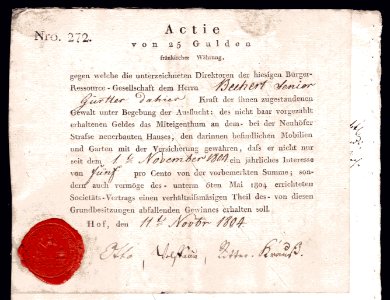 Nro. 272.
Actie
von 25 Gulden
fränkischer Währung,
gegen welche die unterzeichneten Direktoren der hiesigen Bürger-
Ressource-Gesellschaft dem Herrn Bechert Senior
Gürtler dahier Kraft der ihnen zugestandenen
Gewalt unter Begebung der Ausflucht; des nicht baar vorgezahlt
erhaltenen Geldes das Miteigenthum an dem- bei der Neuhöfer
Straße neuerbauten Hauses, den darinnen befindlichen Mobilien
und Garten mit der Versicherung gewähren, daß er nicht nur
seit dem 1t November 1804 ein jährliches Interesse
von fünf pro Cento von der vorbemerkten Summe; son-
dern auch vermöge des- unterm 6ten Mai 1804 errichteten
Societäts-Vertrags einen verhältnißmäsigen Theil des- von diesen
Grundbesitzungen abfallenden Gewinnes erhalten soll.
Hof, den 11t Novbr 1804
Otto Ritter Krauß.